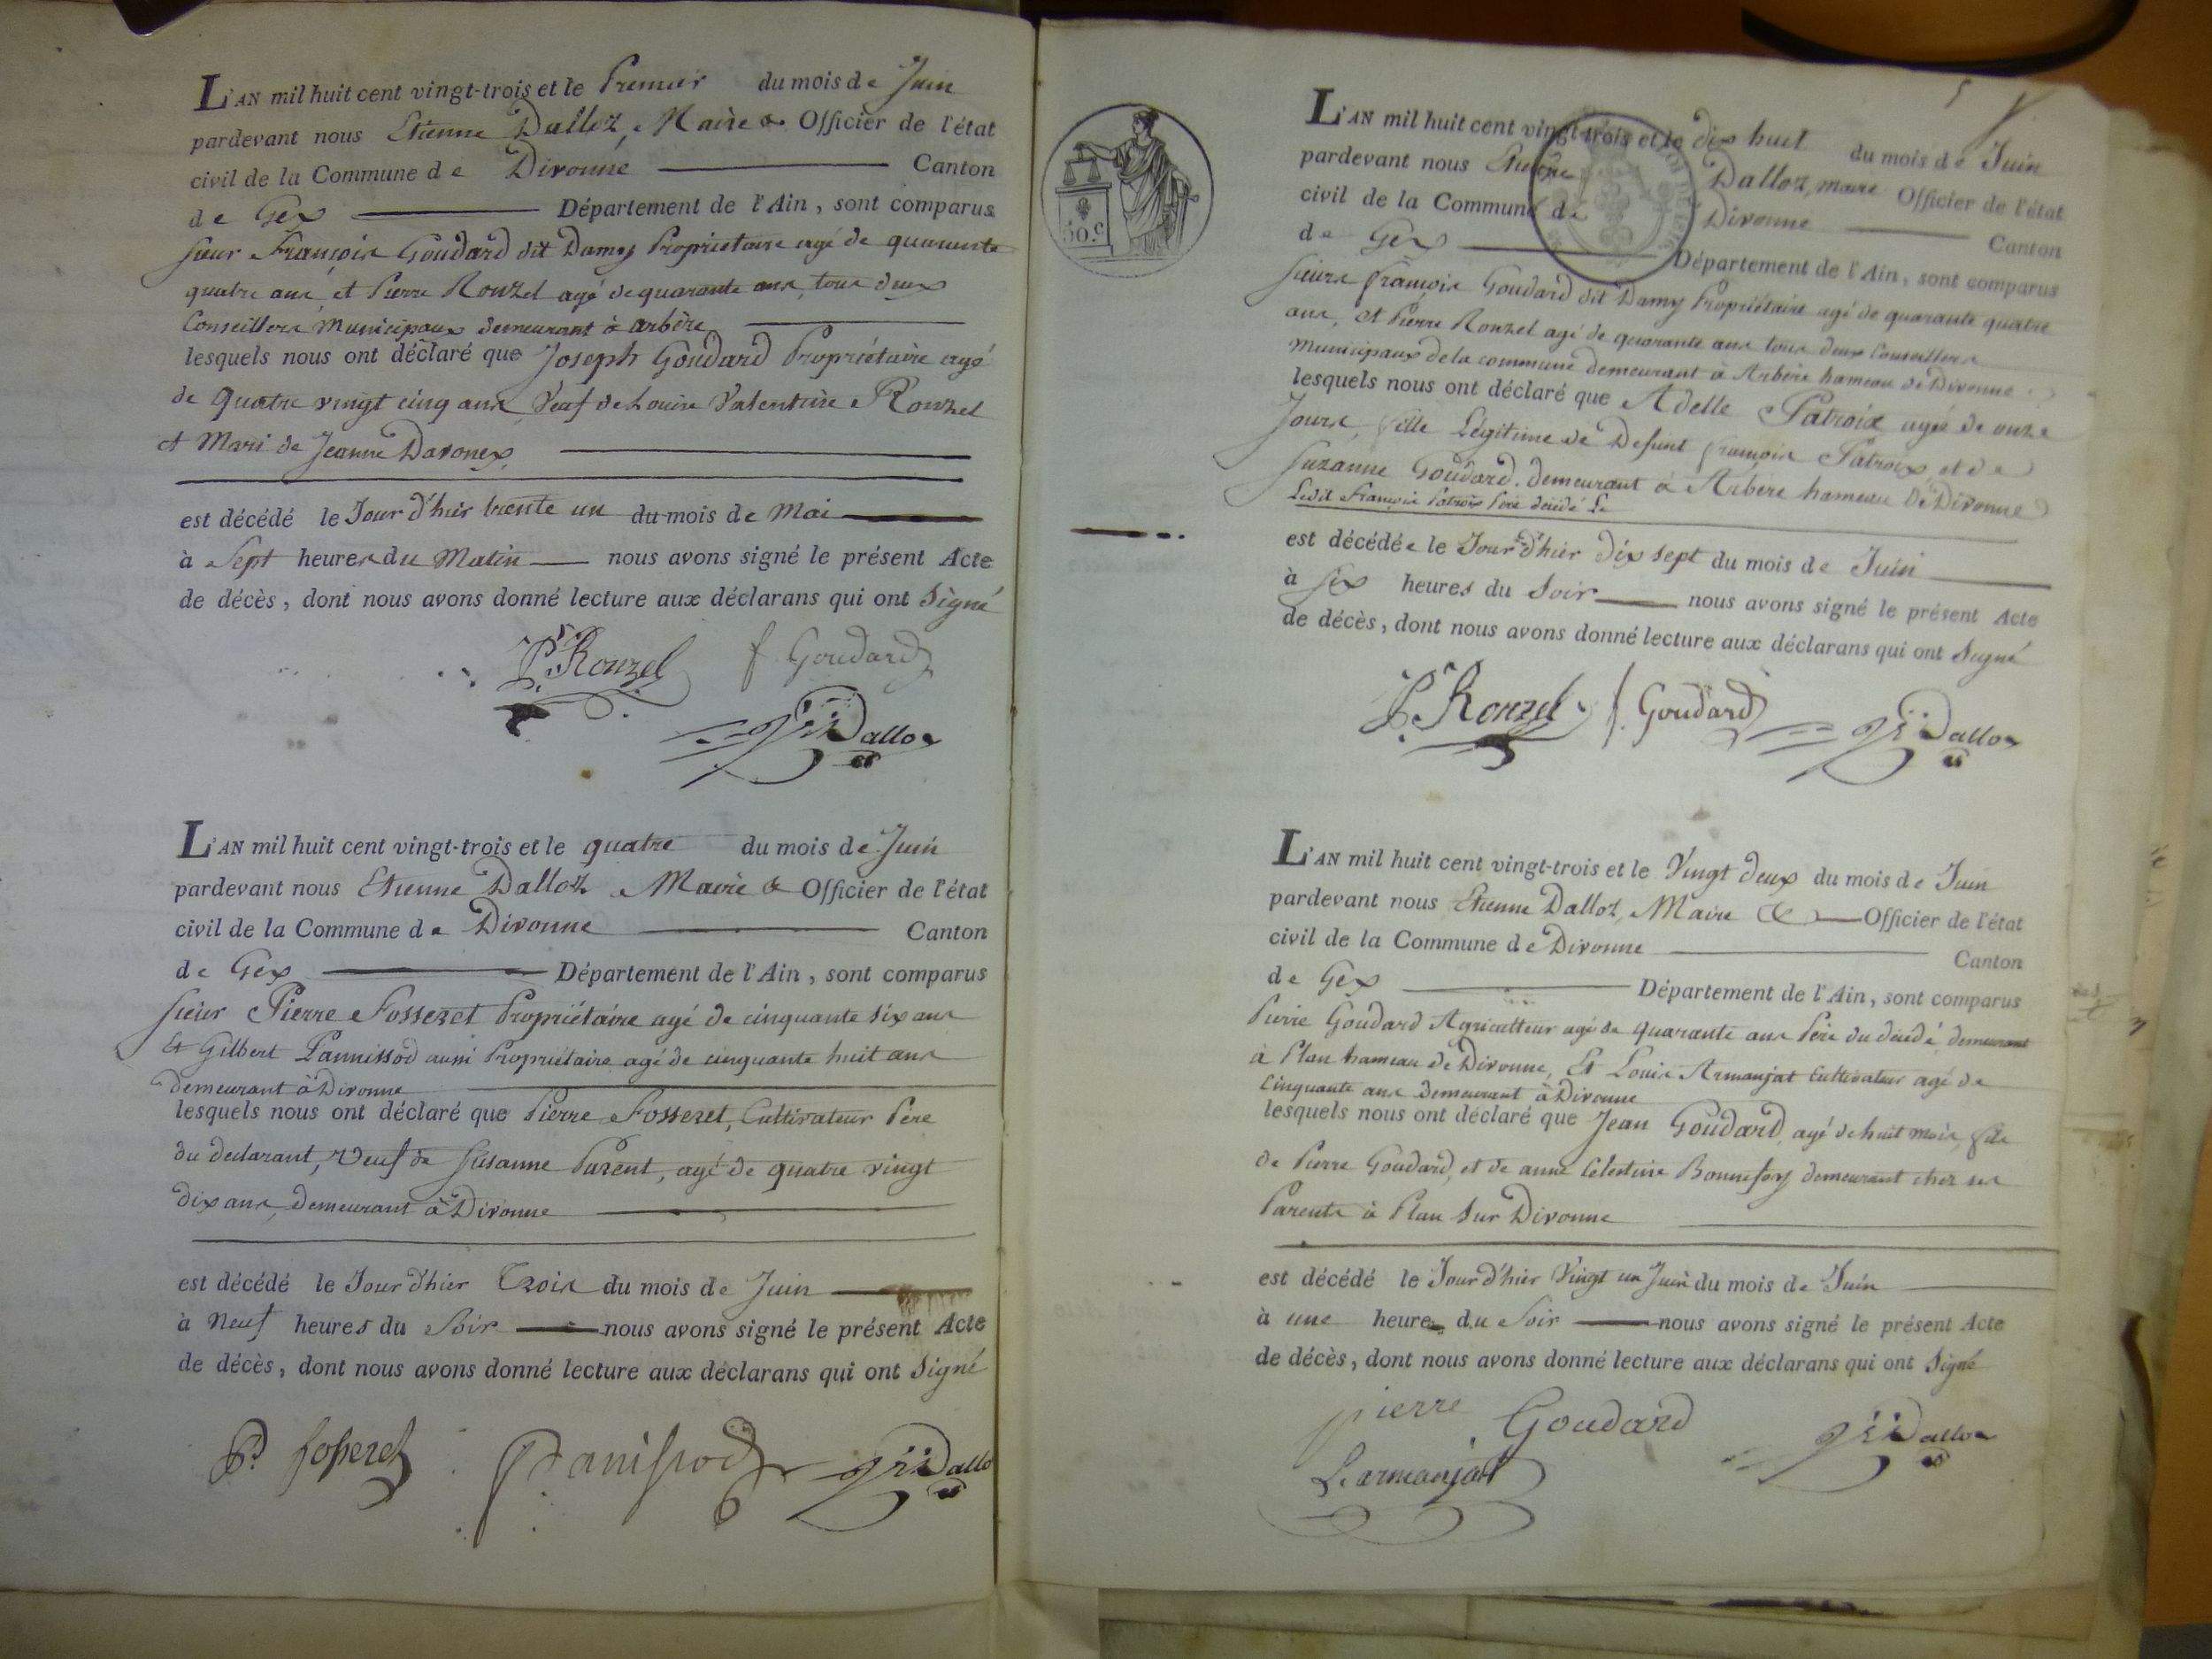 L'AN mil huit cent vingt-trois et le Premier du mois de Juin
pardevant nous Etienne Dalloz, Maire & Officier de l'état
civil de la Commune de Divonne Canton
de Gex Département de l'Ain, sont comparus
sieur François Goudard dit Damy Propriétaire agé de quarante
quatre ans et Pierre Rouzel agé de quarante ans, tous deux
Conseillers Municipaux demeurant à arbère
lesquels nous ont déclaré que Joseph Goudard Propriétaire agé
de Quatre vingt cinq ans, Veuf de Louise Valentine Rouzel
et Mari de Jeanne Davonex
est décédé le Jour d'hier trente un du mois de Mai
à Sept heures du Matin nous avons signé le présent Acte
de décès, dont nous avons donné lecture aux déclarans qui ont Signé
P. Rouzel f Goudard
Dalloz
L'AN mil huit cent vingt-trois et le quatre du mois de Juin
pardevant nous Etienne Dalloz Maire & Officier de l'état
civil de la Commune de Divonne Canton
de Gex Département de l'Ain, sont comparus
sieur Pierre Fosseret Propriétaire agé de cinquante six ans
Et Gilbert Pannissod aussi Propriétaire agé de cinquante huit ans
demeurant à Divonne
lesquels nous ont déclaré que Pierre Fosseret, Cultivateur Père
du declarant, Veuf de Susanne Parent, agé de quatre vingt
dix ans, demeurant à Divonne
est décédé le Jour d'hier Trois du mois de Juin
à Neuf heures du Soir nous avons signé le présent Acte
de décès, dont nous avons donné lecture aux déclarans qui ont Signé
P. fosseret Panissod Dalloz
50.c
5
L'AN mil huit cent vingt-trois et le dix huit du mois de Juin
pardevant nous Etienne Dalloz, maire Officier de l'état
civil de la Commune de Divonne Canton
de Gex Département de l'Ain, sont comparus
sieurs françois Goudard dit Damy Propriétaire agé de quarante quatre
ans, et Pierre Rouzel agé de quarante ans tous deux Conseillers
Municipaux de la commune demeurant à Arbère hameau de Divonne
lesquels nous ont déclaré que Adelle Patroix agée de onze
Jours, fille Légitime de Defunt françois Patroix, et de
Suzanne Goudard. demeurant à Arbère hameau de Divonne
Ledit François Patroix Père décédé Le
est décédée le Jour d'hier dix sept du mois de Juin
à six heures du Soir nous avons signé le présent Acte
de décès, dont nous avons donné lecture aux déclarans qui ont Signé
P. Rouzel f. Goudard Dalloz
L'AN mil huit cent vingt-trois et le Vingt deux du mois de Juin
pardevant nous Etienne Dalloz, Maire & Officier de l'état
civil de la Commune de Divonne Canton
de Gex Département de l'Ain, sont comparus
Pierre Goudard Agriculteur agé de quarante ans Père du décédé, demeurant
à Plan hameau de Divonne, Et Louis Armanjat Cultivateur agé de
Cinquante ans demeurant à Divonne
lesquels nous ont déclaré que Jean Goudard, agé de huit mois, fils
de Pierre Goudard, et de anne Celestine Bonnefoy demeurant chez ses
Parents à Plan sur Divonne
est décédé le Jour d'hier Vingt un Juin du mois de Juin
à une heure du Soir nous avons signé le présent Acte
de décès, dont nous avons donné lecture aux déclarans qui ont Signé
pierre Goudard Dalloz
L. armanjat